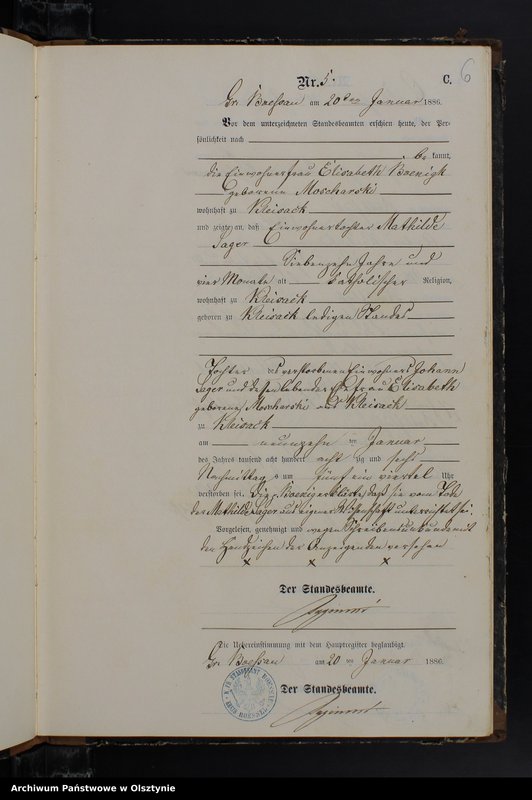 6
Nr. 5. C.
Gr. Boessau am 20ten Januar 1886.
Vor dem unterzeichneten Standesbeamten erschien heute, der Per-
sönlichkeit nach
be kannt,
die Einwohnerfrau Elisabeth Boenigk
geborene Moscharski
wohnhaft zu Kleisack
und zeigte an, daß Einwohnertochter Mathilde
Sager
Siebenzehn Jahre und
vier Monate alt katholischer Religion,
wohnhaft zu Kleisack
geboren zu Kleisack ledigen Standes
Tochter des verstorbenen Einwohners Johann
Sager und dessen lebender Ehefrau Elisabeth
geborene Moscharski aus Kleisack
zu Kleisack
am neunzehn ten Januar
des Jahres tausend acht hundert acht zig und sechs
Nachmittags um fünf ein viertel Uhr
verstorben sei. Die Boenigk erklärte, daß sie vom Tode
der Mathilde Sager aus eigener Wissenschaft unterrichtet sei.
Vorgelesen, genehmigt und wegen Schreibensunkunde mit
den Handzeichen der Anzeigenden versehen
x x x
Der Standesbeamte.
Die Uebereinstimmung mit dem Hauptregister beglaubigt.
Gr. Boessau am 20 ten Januar 1886.
Der Standesbeamte.
Archiwum Państwowe w Olsztynie